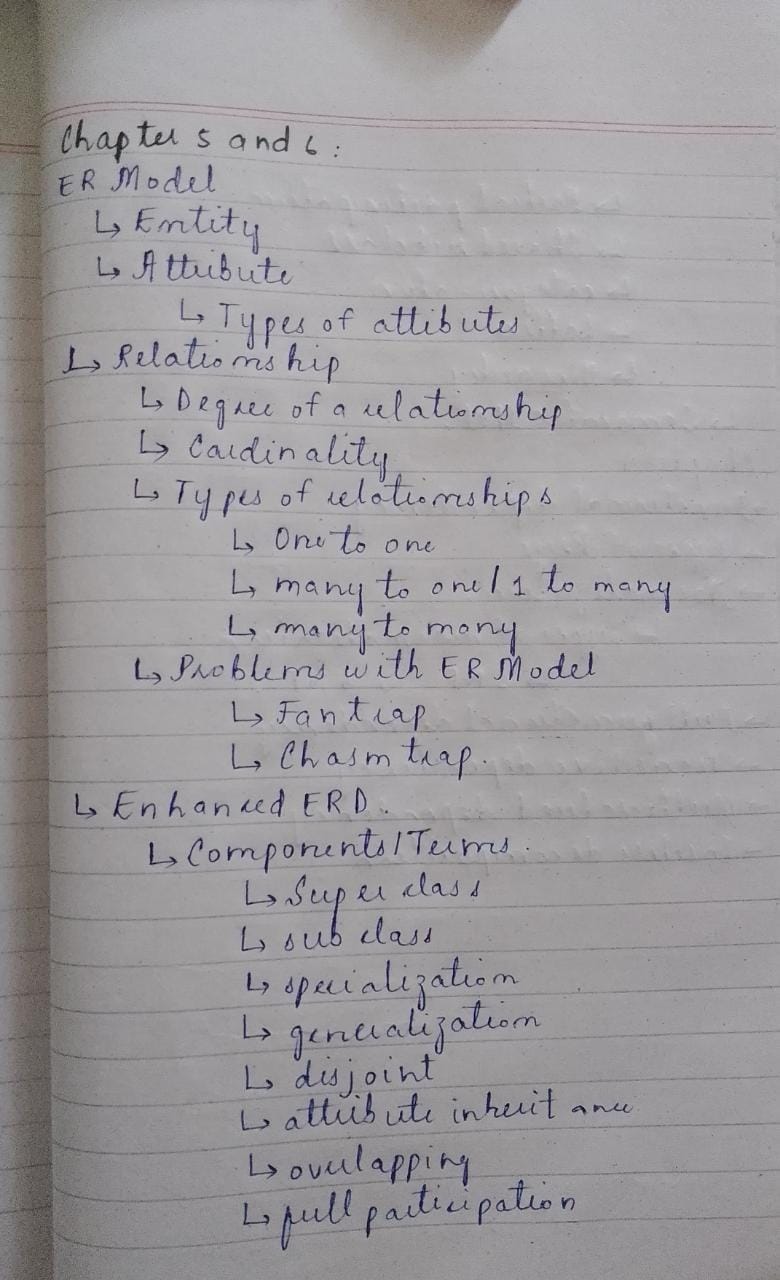 Chapter 5 and 6 :
ER Model
↳ Entity
↳ Attribute
↳ Types of attibutes
↳ Relationship
↳ Degree of a relationship
↳ Cardinality
↳ Types of relationships
↳ One to one
↳ many to one / 1 to many
↳ many to many
↳ Problems with ER Model
↳ Fan trap
↳ Chasm trap.
↳ Enhanced ERD.
↳ Components / Terms.
↳ Super class
↳ sub class
↳ specialization
↳ generalization
↳ disjoint
↳ attribute inheritance
↳ overlapping
↳ full participation